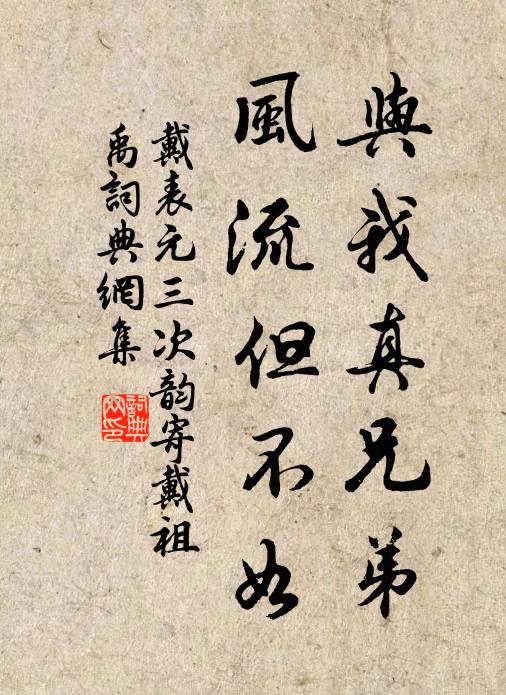 與我真兄弟
風流但不如
戴表元三次韵寄戴祖
禹詞典網集
詞典网印